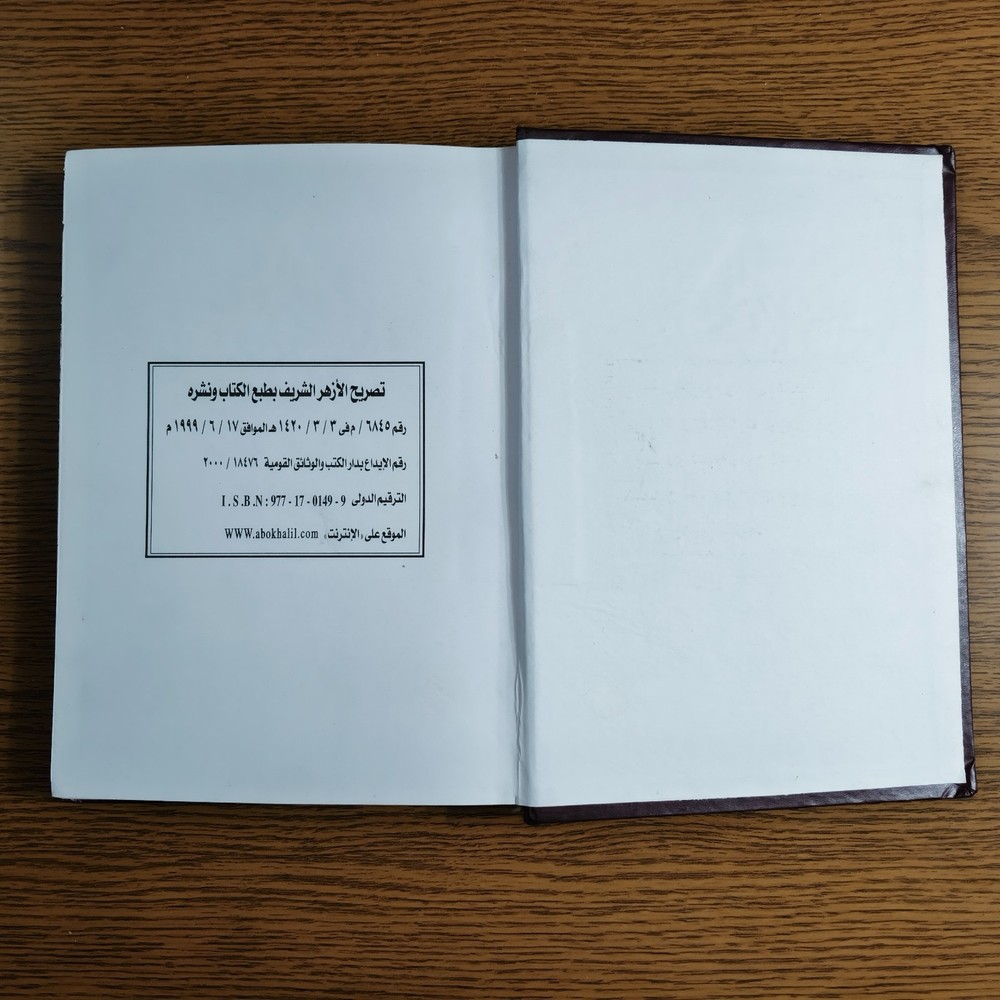 تصريح الأزهر الشريف بطبع الكتاب ونشره
رقم ٦٨٤٥ / م فى ٣ / ٣ / ١٤٢٠ هـ الموافق ١٧ / ٦ / ١٩٩٩ م
رقم الإيداع بدار الكتب والوثائق القومية ١٨٤٧٦ / ٢٠٠٠
الترقيم الدولى I.S.B.N : 977 - 17 - 0149 - 9
الموقع على «الإنترنت» WWW.abokhalil.com